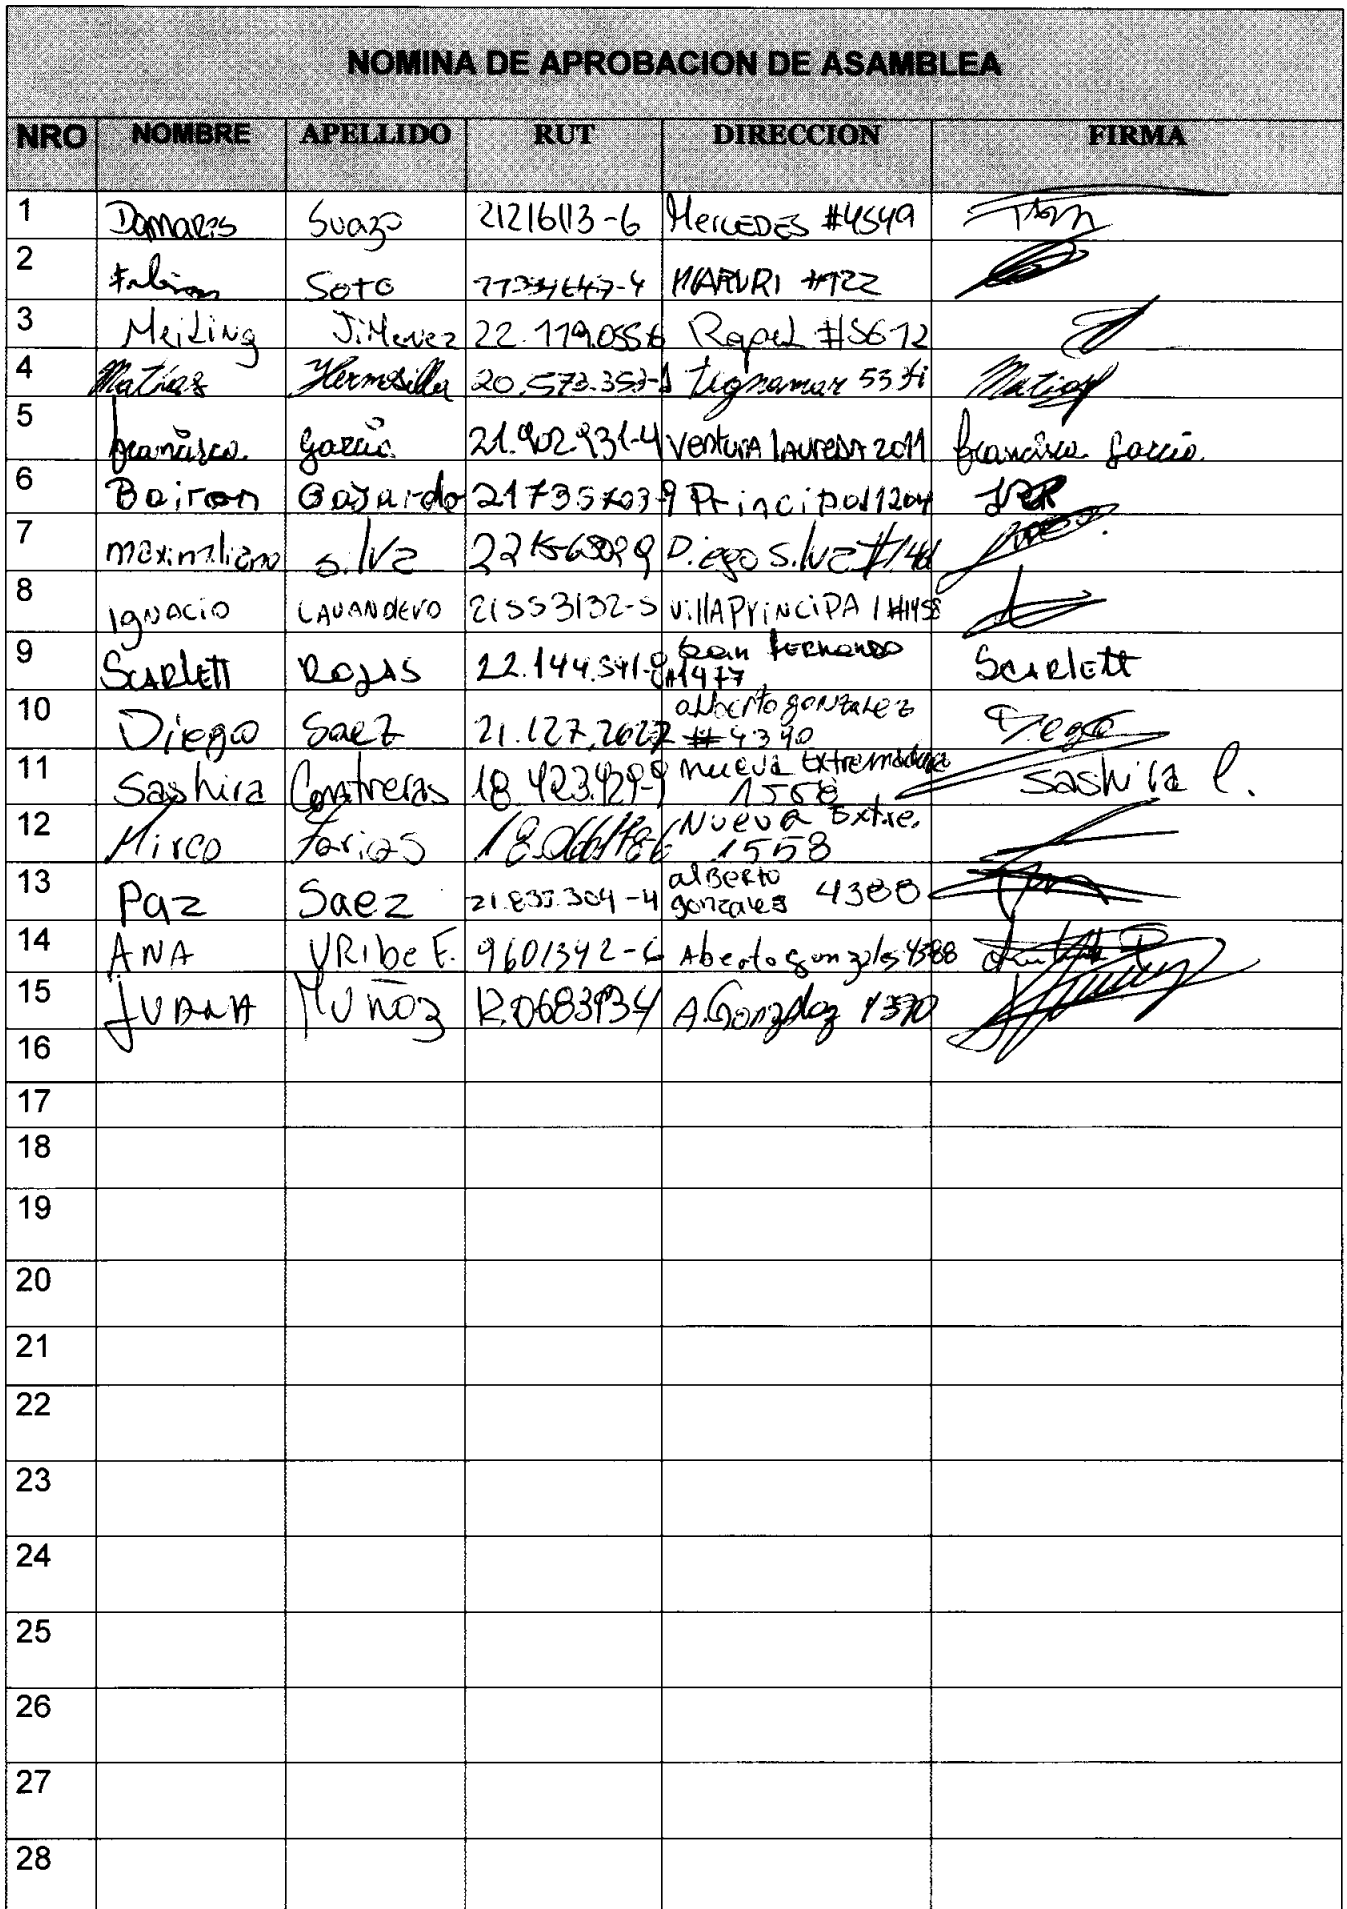 NOMINA DE APROBACION DE ASAMBLEA
NRO NOMBRE APELLIDO RUT DIRECCION FIRMA
1 Damares Suazo 21216113-6 Mercedes #4549
2 Fabian Soto MARURI #722
3 Meiling Jimenez 22.119.055-6 Rapel #5672
4 Matias Hermosilla 20.573.353- Tignamar Matias
5 francisca garcia 21.902.931-4 Ventura Laureda 2011 francisca garcia
6 Bairon Gajardo Principal 1204
7 maximiliano silva Diego Silva
8 Ignacio LAVANDERO 21553132-5 VillA PriNCiPAl #1458
9 Scarlett Rojas 22.144.541- San Fernando Scarlett
#1477
10 Diego Saez 21.127.262 alberto gonzalez Diego
# 4390
11 Sashira Contreras 18.423.429-9 nueva Extremadura Sashira C.
1558
12 Mirco Farias Nueva Extre.
1558
13 Paz Saez alberto
gonzales 4388
14 ANA URibe F. 9601342-6 Aberto gonzales 4388
15 JUANA MUÑOZ A. Gonzalez
16
17
18
19
20
21
22
23
24
25
26
27
28